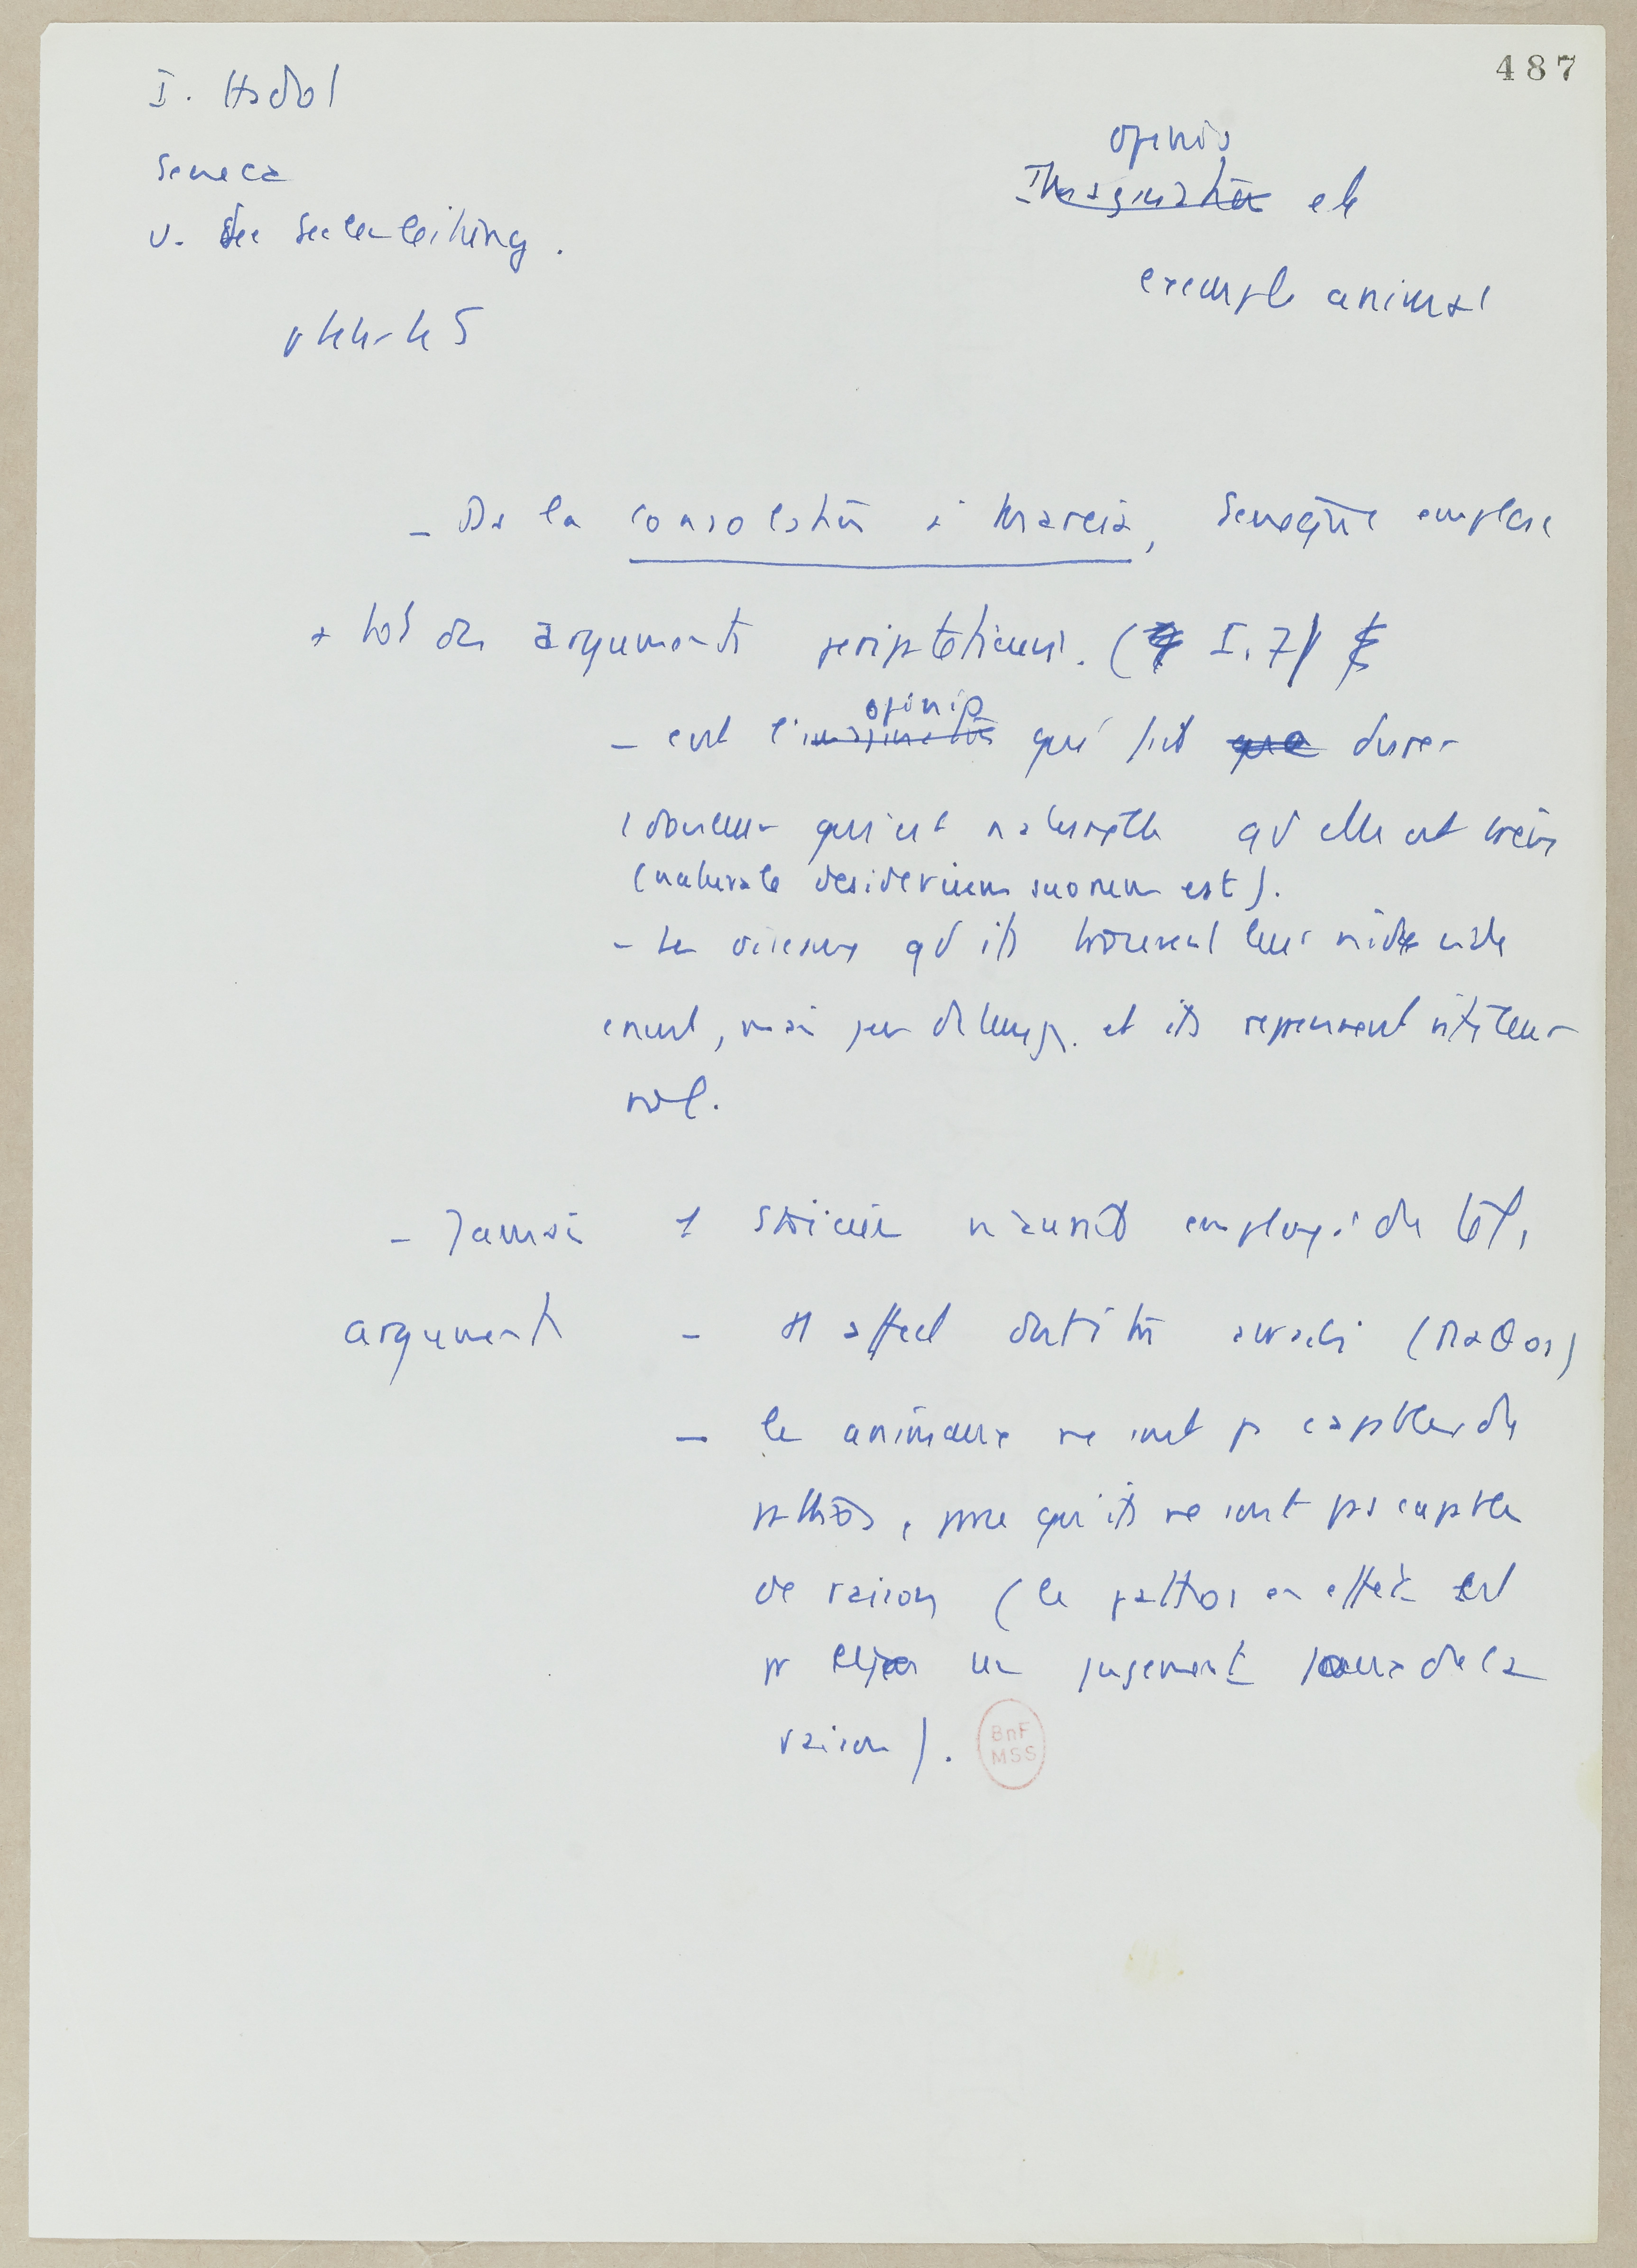 487
I. Hadot
Seneca
u. die Seelenleitung.
opinio
Imagination et
exemple animal
- Ds la consolation à Marcia, Sénèque emploie
des arguments péripatéticiens. (I. 7)
opinio
- c'est l'imagination qui fait que durer
douleur qui est naturelle qd elle est
(naturale desiderium suorum est).
- les oiseaux qd ils trouvent leur nid vide
crient, mais peu de temps. et ils reprennent vite leur
vol.
- Jamais 1 stoicien n'aurait employé de tels
arguments - (παθος)
- les animaux ne sont pas capables de
pathos, parce qu'ils ne sont pas capables
de raison (le pathos en effet est
un jugement de la
raison).
BnF
MSS